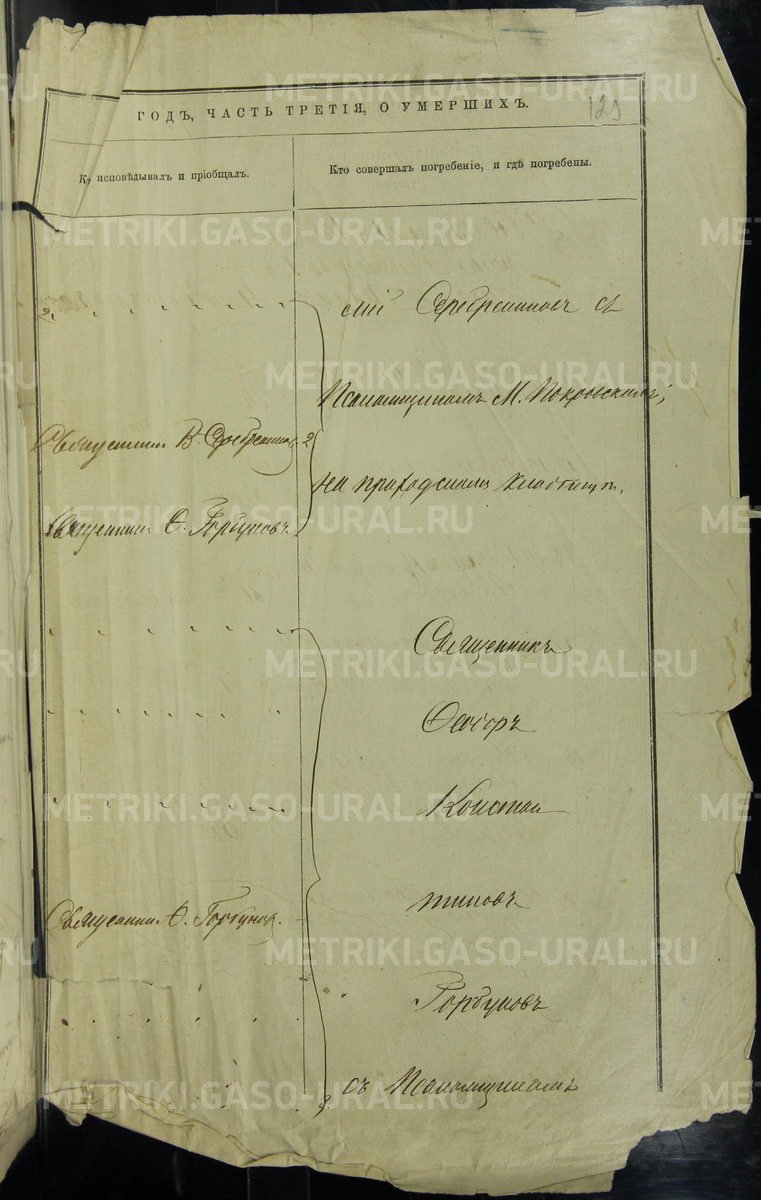 ГОДЪ, ЧАСТЬ ТРЕТІЯ, О УМЕРШИХЪ.
129
исповѣдывалъ и пріобщалъ.
Кто совершалъ погребеніе, и гдѣ погребены.
сій Серебрениковъ съ
Псаломщикомъ М. Покровскимъ,
Священник В. Серебрениковъ
на приходскомъ кладбищѣ.
Священник Ѳ. Горбуновъ
Священникъ
Ѳеодоръ
Констан
тиновъ
Священник Ѳ. Горбуновъ.
Горбуновъ
съ Псаломщикомъ
METRIKI.GASO-URAL.RU